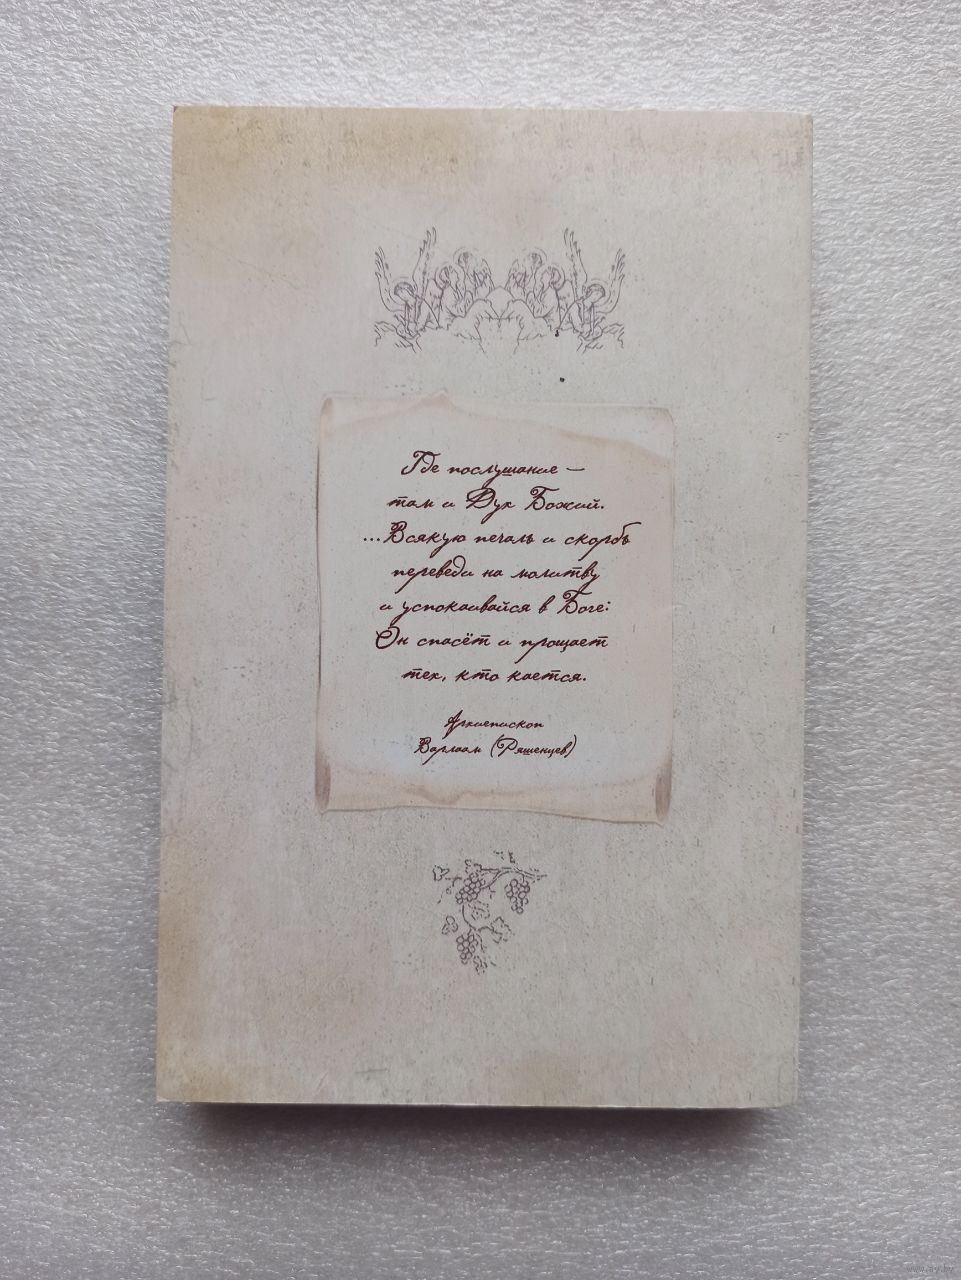 Где послушание —
там и Дух Божий.
...Всякую печаль и скорбь
переведи на молитву
и успокаивайся в Боге:
Он спасёт и прощает
тех, кто кается.
Архиепископ
Варлаам (Ряшенцев)